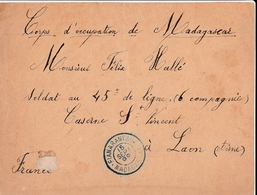 Corps d'occupation de Madagascar
Monsieur Félix Hallé
Soldat au 45e de ligne (6 compagnie)
Caserne St Vincent
à Laon (Aisne)
France